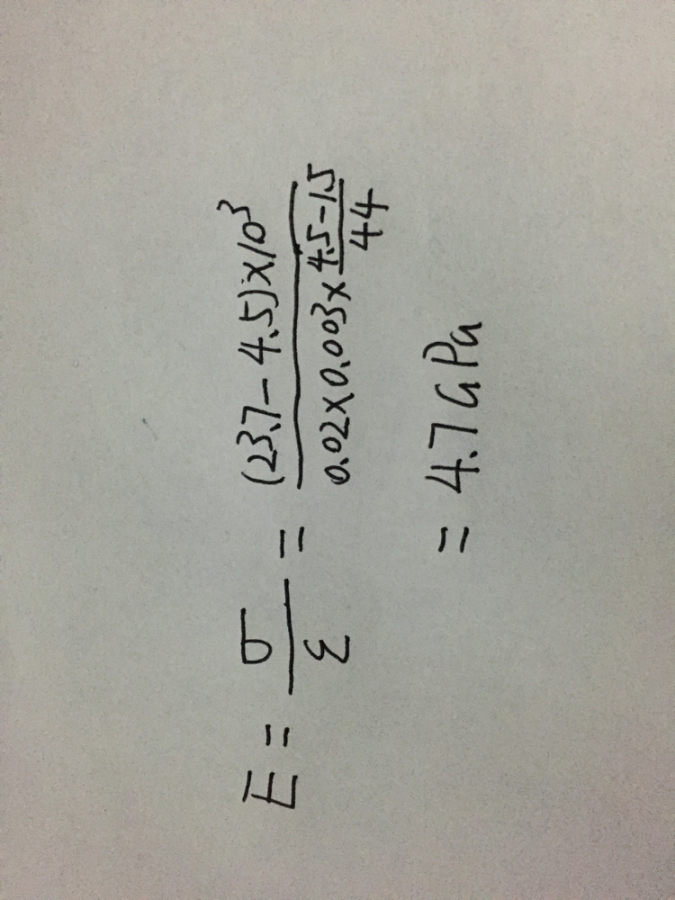 E = σ/ε = (23.7-4.5)×10³ / (0.02×0.003× (4.5-1.5)/44)
= 4.7 GPa